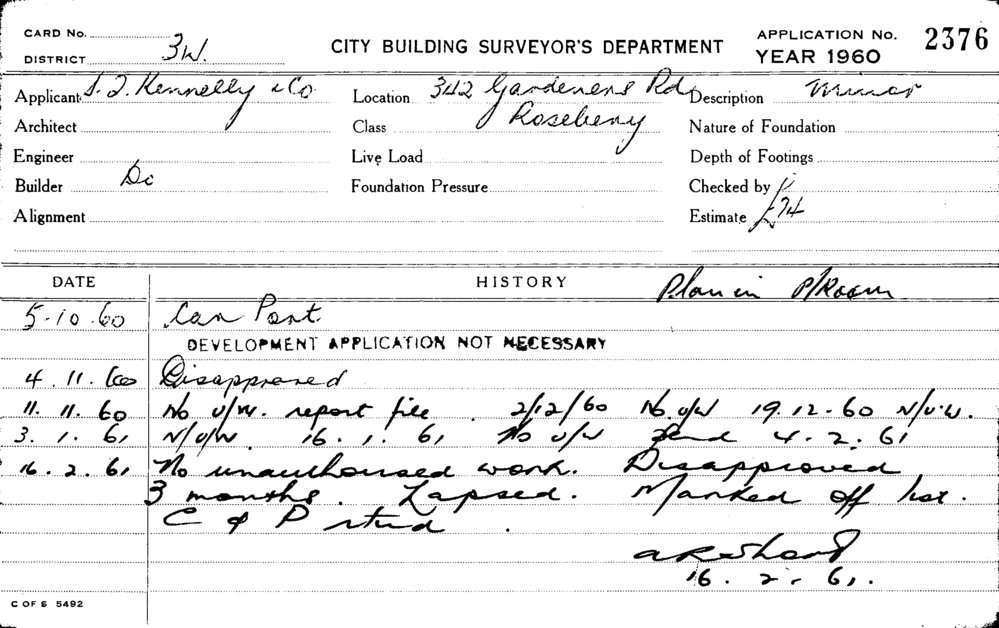 CARD No.
DISTRICT 3W.
CITY BUILDING SURVEYOR'S DEPARTMENT
APPLICATION No. 2376
YEAR 1960
Applicant S. J. Kennelly & Co
Location 342 Gardeners Rd,
Rosebery
Description Minor
Architect
Class
Nature of Foundation
Engineer
Live Load
Depth of Footings
Builder Do
Foundation Pressure
Checked by
Alignment
Estimate £74
DATE
HISTORY
Plan in P/Room
5.10.60 Car Port.
DEVELOPMENT APPLICATION NOT NECESSARY
4.11.60 Disapproved
11.11.60 No U/W. report file. 2/12/60 No U/W 19.12.60 N/U.W.
3.1.61 N/U/W. 16.1.61 No U/W 4.2.61
16.2.61 No unauthorised work. Disapproved
3 months. Lapsed. Marked off list.
C & P rtnd.
16.2.61.
C OF S 5492